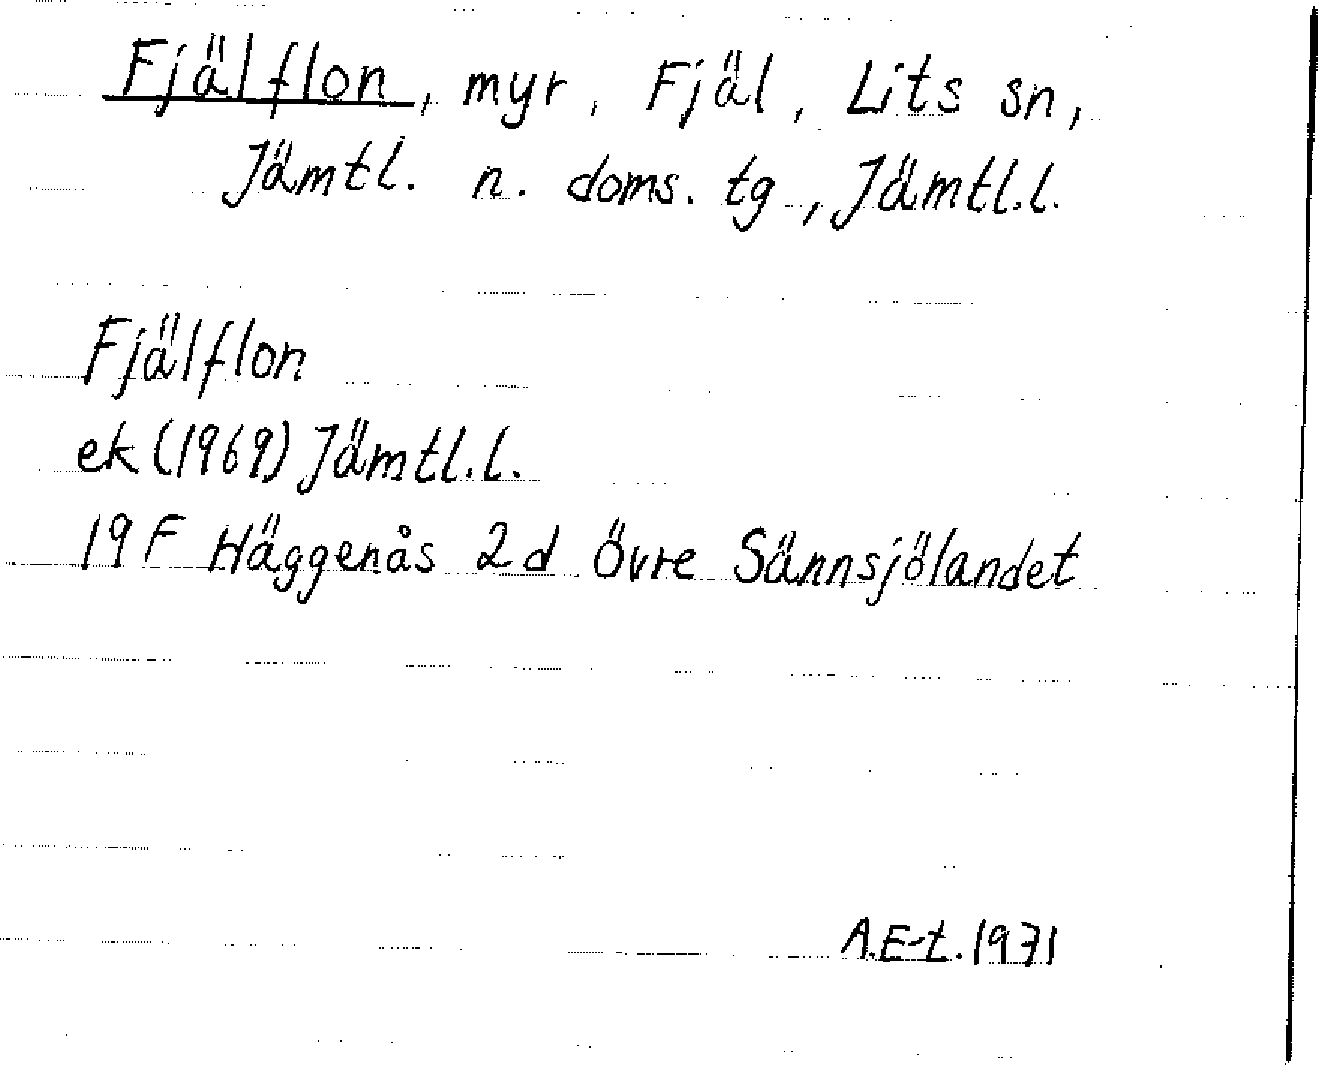 Fjälflon, myr, Fjäl, Lits sn,
Jämtl. n. doms. tg, Jämtl.l.
Fjälflon
ek (1969) Jämtl.l.
19 F Häggenås 2d Övre Sännsjölandet
A.E-t. 1971